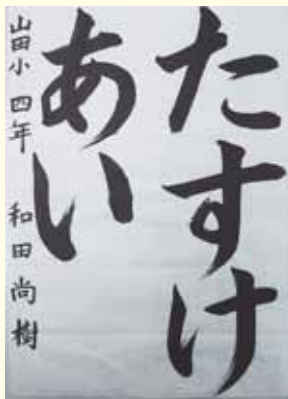 たすけ
あい
山田小 四年 和田尚樹